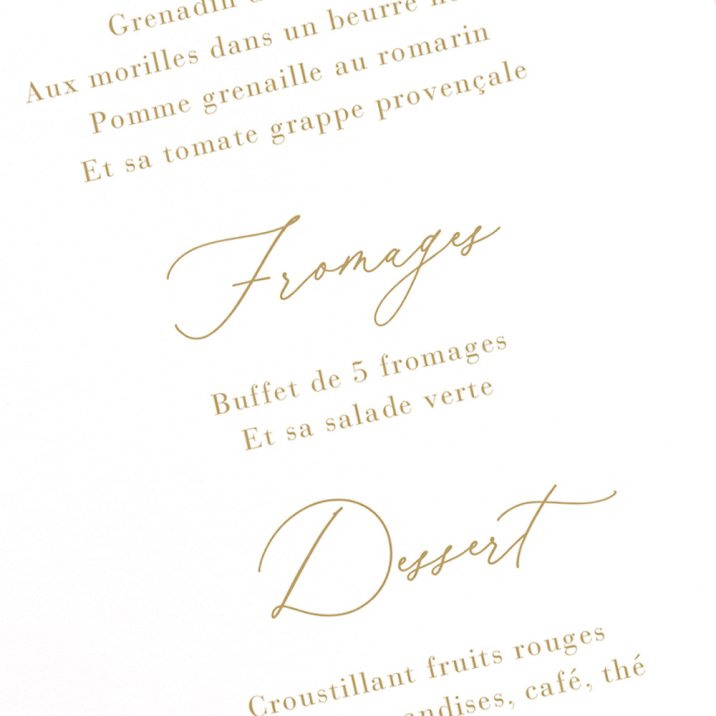 Grenadin
Aux morilles dans un beurre
Pomme grenaille au romarin
Et sa tomate grappe provençale
Fromages
Buffet de 5 fromages
Et sa salade verte
Dessert
Croustillant fruits rouges
café, thé